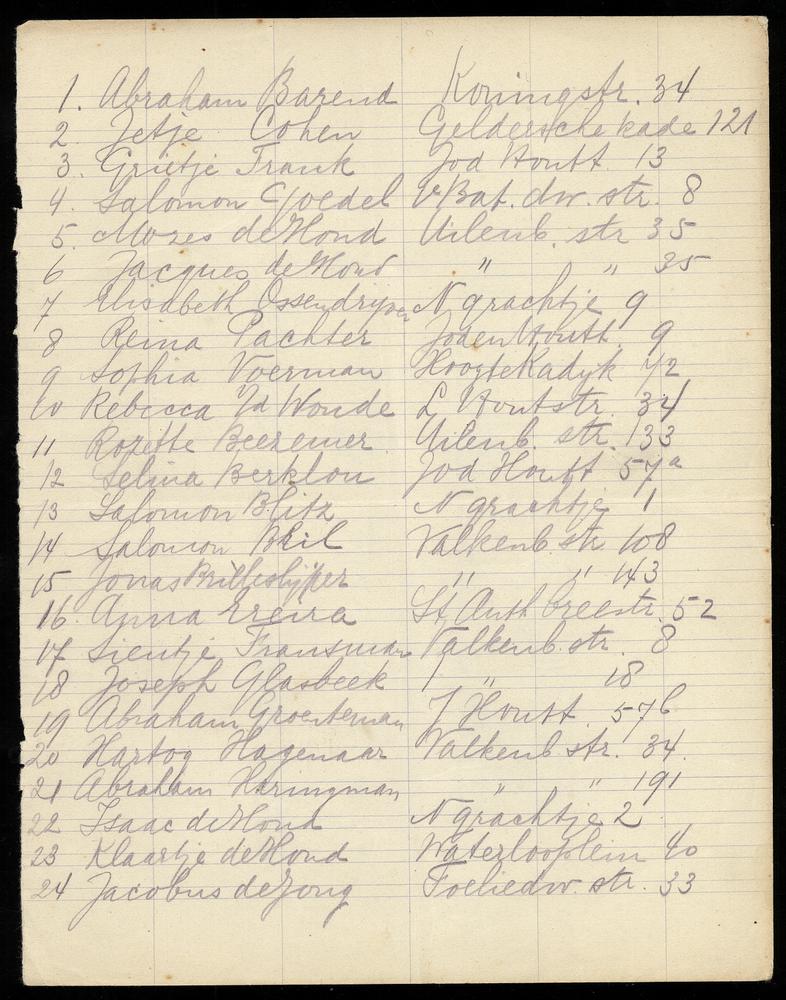 1. Abraham Barend Koningstr. 34
2 Jetje Cohen Geldersche kade 121
3. Grietje Frank Jod Houtt 13
4. Salomon Goedel V Bat. dw. str. 8
5. Mozes de Hond Uilenb. str 35
6 Jacques de Hond " " 35
7 Elisabeth Ossendrijver N grachtje 9
8 Reina Pachter Joden Houtt. 9
9 Sophia Voerman Hoogte Kadyk 72
10 Rebecca vd Woude L Houtstr. 34
11 Rozette Beezemer Uilenb. str. 133
12 Selina Berklou Jod Houtt 57a
13 Salomon Blitz N grachtje 1
14 Salomon Bril Valkenb. str 108
15 Jonas Brilleslijper " " 143
16. Anna Ereira St. Anth breestr. 52
17 Sientje Fransman Valkenb. str. 8
18 Joseph Glasbeek " 18
19 Abraham Groenteman J Houtt. 57b
20 Hartog Hagenaar Valkenb str. 34.
21 Abraham Haringman " " 191
22 Isaac de Hond N grachtje 2
23 Klaartje de Hond Waterlooplein 40
24 Jacobus de Jong Foeliedw. str. 33